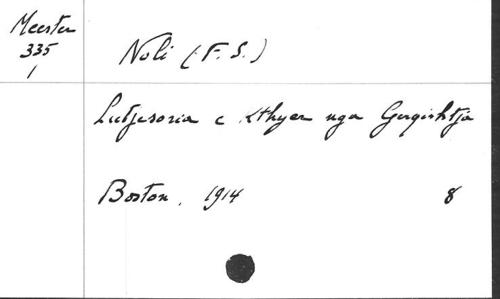 Meester
335
1
Noli (F. S.)
Lutjesoria e Kthyer nga Gerqishtja
Boston, 1914 8